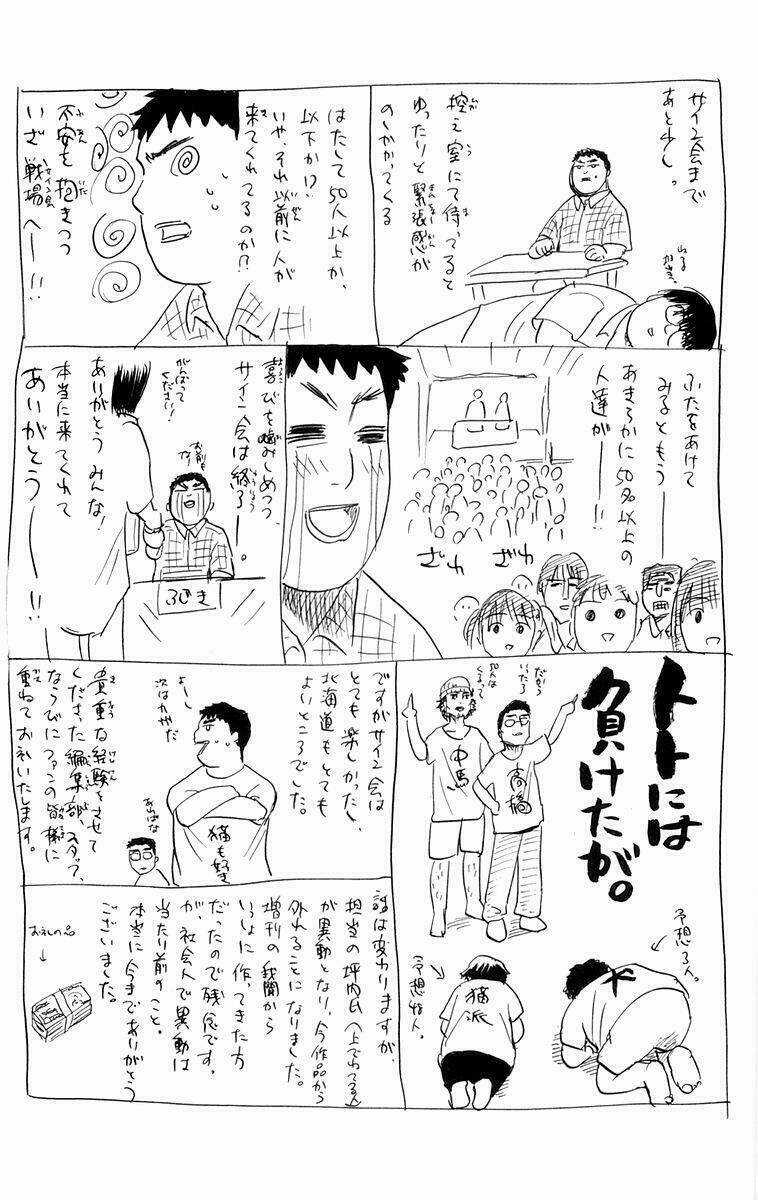 サイン会まで
あと少し。
控え室にて待ってると
ゆったりと緊張感が
のしかかってくる
ねる
なぎ。
はたして50人以上か、
以下か!?
いや、それ以前に人が
来てくれてるのか!?
不安を抱きつつ
いざ戦場へー!!
サイン会
ふたをあけて
みるともう――
あきらかに50名以上の
人達が――!!
ざわ
ざわ
喜びを噛みしめつつ
サイン会は終了――。
がんばって
ください!
ありがとうみんな!
本当に来てくれて
ありがとう――!!
トトには
負けたが。
だから
いったろ
中馬
高橋
予想3人。
猫派
ですがサイン会は
とても楽しかったし、
北海道もとても
よいところでした。
よーし
次はカゲだ
猫も好き
あぁばな
貴重な経験をさせて
くださった編集部、スタッフ、
ならびにファンの皆様に
重ねてお礼いたします。
話は変わりますが、
担当の坪内氏(上でねてる人)
が異動となり、今作品から
外れることになりました。
増刊の我聞から
いっしょに作ってきた方
だったので残念です。
が、社会人で異動は
当たり前のこと。
本当に今までありがとう
ございました。